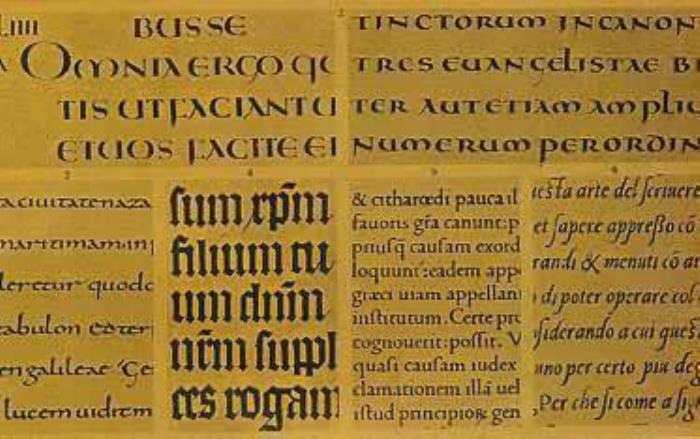 BUSSE
OMNIA ERGO QU
TIS UT FACIANT U
ET UOS FACITE EI
TINCTORUM IN CANON
TRES EUANGELISTAE
TER AUT ETIAM AMPLIU
NUMERUM PER ORDIN
aciuitatenaza
martimam.inj
leretur quodc
tabulon
en galileae
lucem uidrem
sum xp̄m
filium tu
um dn̄m
nr̄m suppl
ces rogam
& citharœdi pauca il
fauoris gr̄a canunt:p
priusq̃ causam exord
loquunt᷑:eadem app
græci uiam appellant
institutum. Certe pro
cognouerit:possit. V
quasi causam iudex
clamationem illā uel
istud principioꝝ gen
icsta arte del scriuere
et sapere appresso cō
randi & menuti cō
di poter operare
siderando a cui quest
uno per certo piu deg
Per che si come a